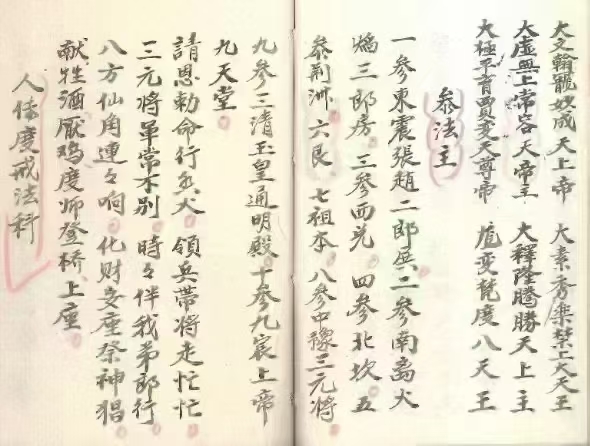 大文翰寵妓成天上帝 大素秀樂禁上大天王
大虛無上常容天帝主 大釋隆騰勝天上主
大極平育賈变天尊帝 变梵度八天王
叅法主
一参東震張趙二郎兵二参南离火
焰三郎房 三参西兑 四参北坎五
叅荆洲 六艮 七祖本 八参中豫三元将
九参三清玉皇通明殿十参九宸上帝
九天堂
請恩勅命行炁火 領兵帶将走忙忙
三元将軍常不别 時々伴我弟郎行
八方仙角連々响 化财妄座祭神猖
献牲酒厭鸡度师登桥上座
人度戒法科